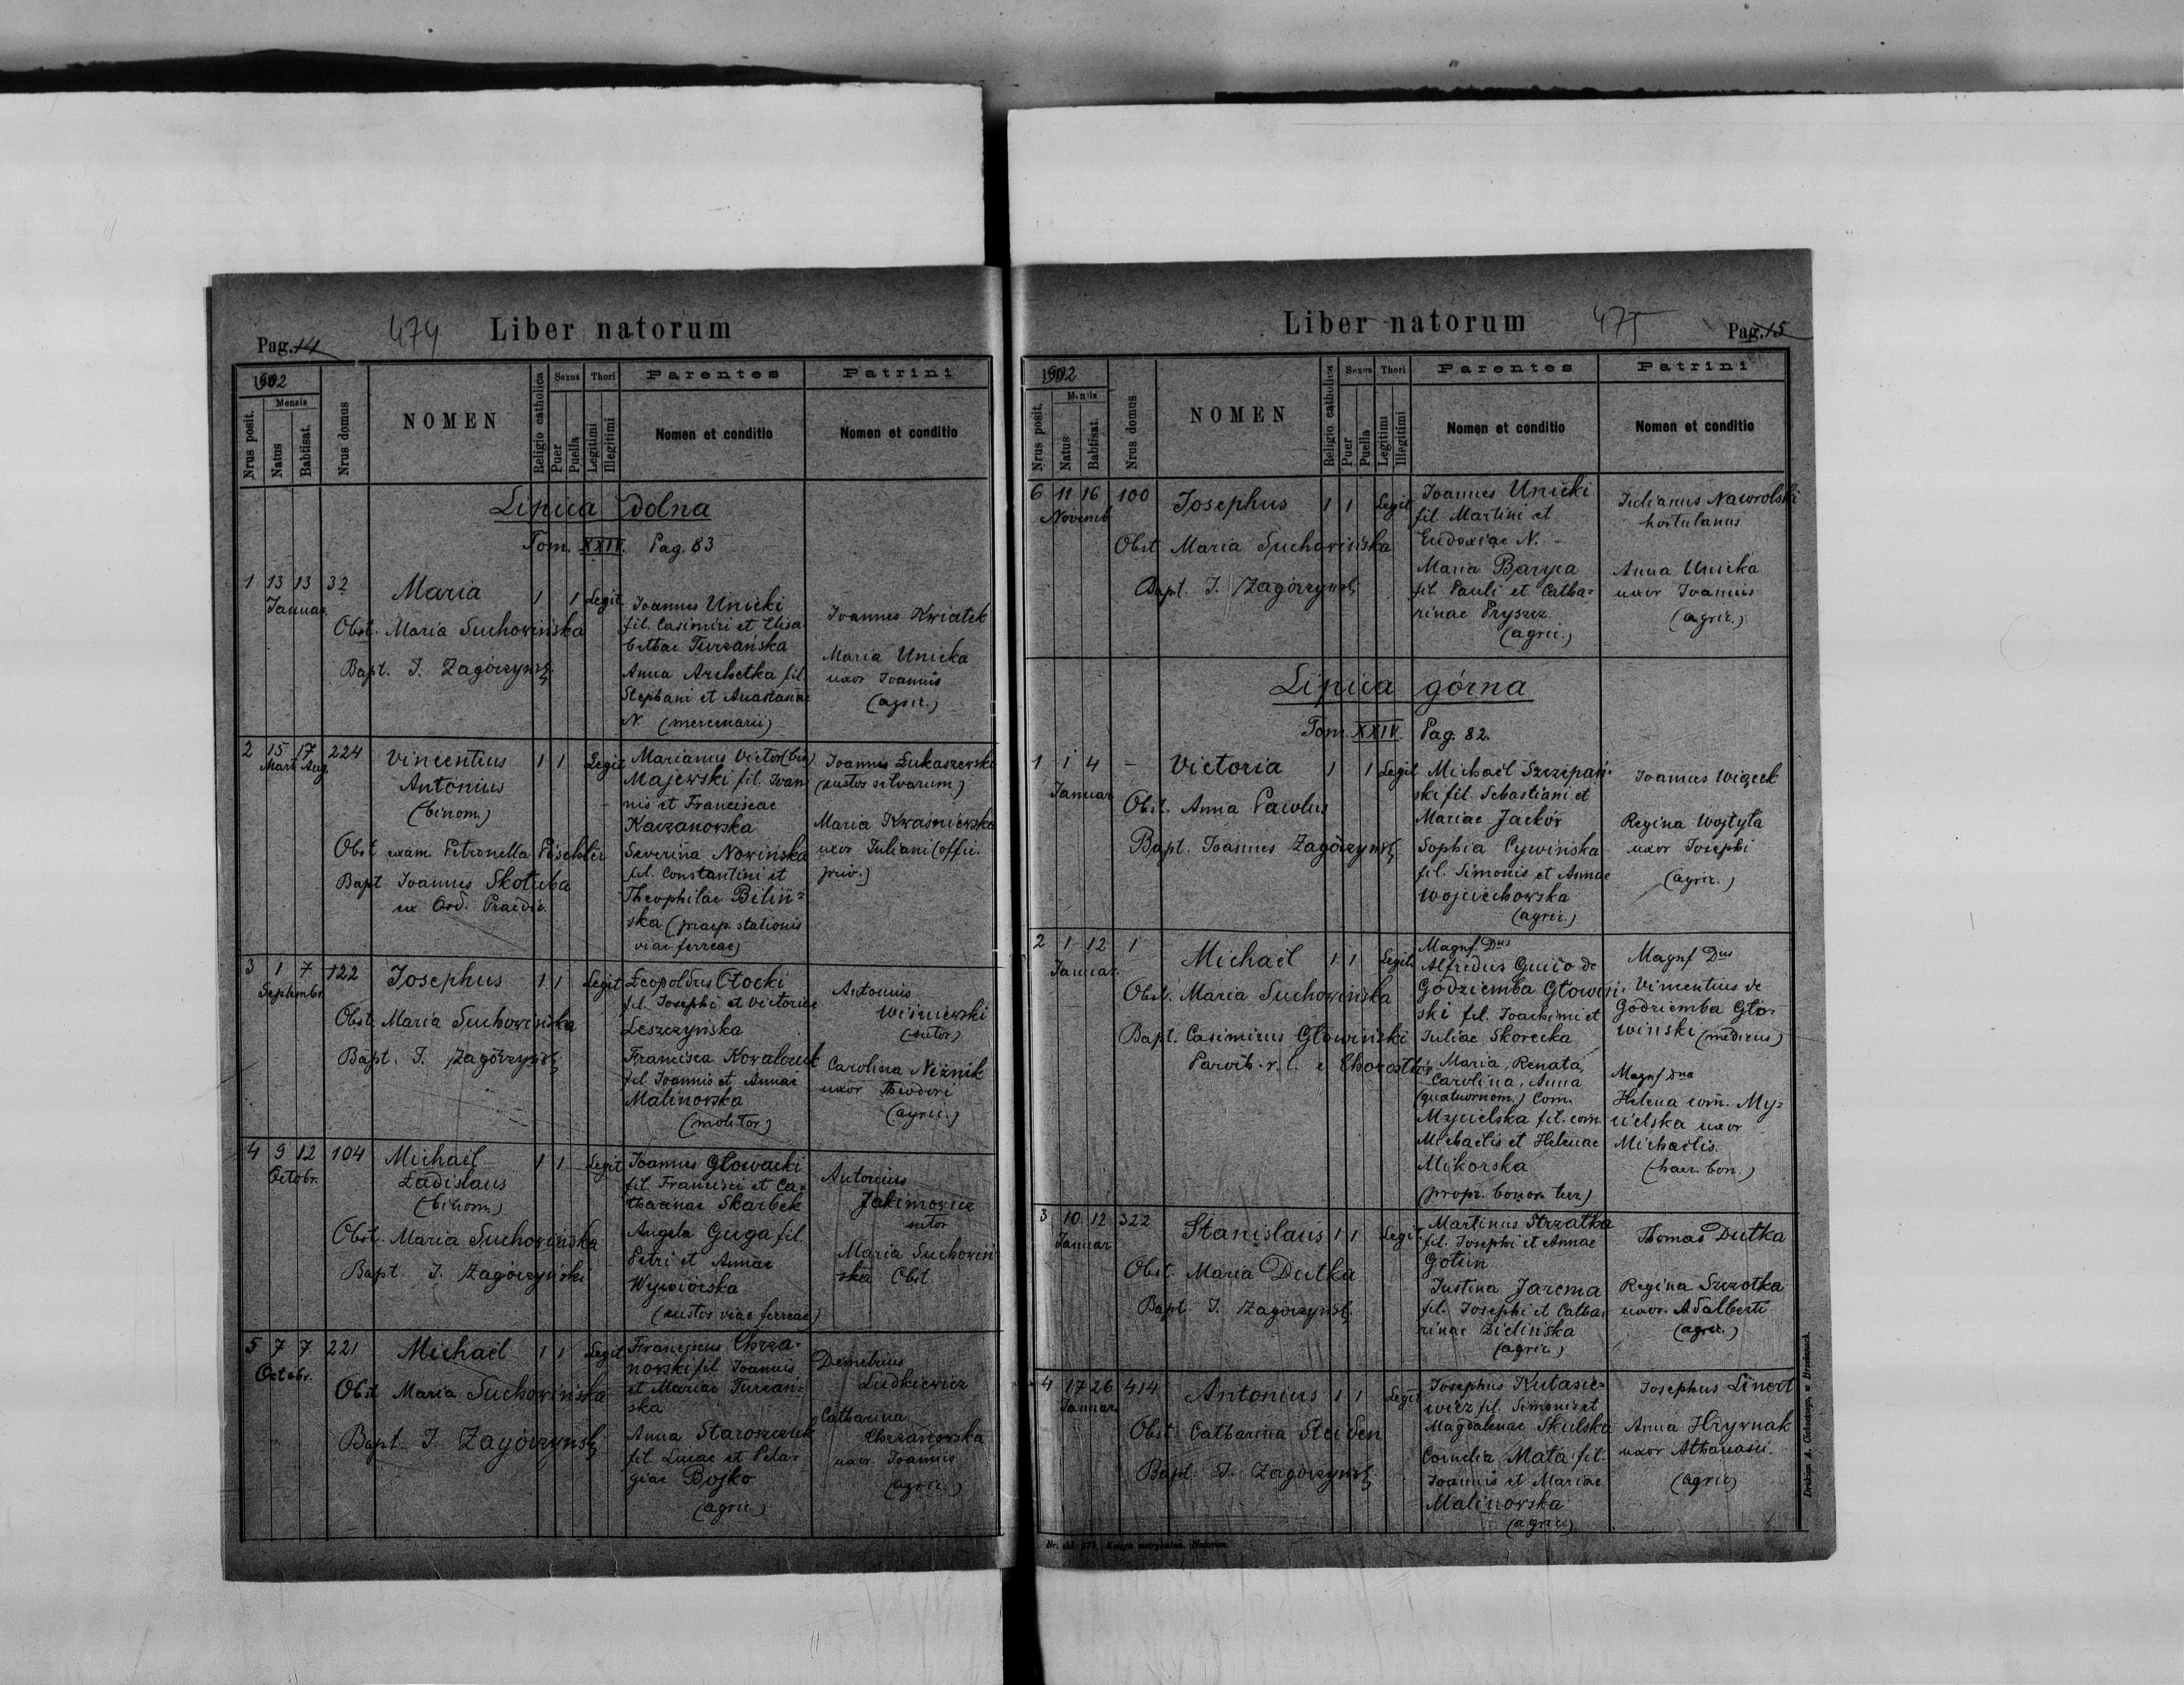 Pag. 14
474
Liber natorum
1902
Mensis
Nrus posit.
Natus
Babtisat.
Nrus domus
NOMEN
Religio catholica
Sexus
Puer
Puella
Thori
Legitimi
Illegitimi
Parentes
Nomen et conditio
Patrini
Nomen et conditio
Lipica dolna
Tom. XXIV. Pag. 83
1 13 13 32 Maria 1 1 Legit.
Januar.
Obst. Maria Suchowińska
Bapt. J. Zagórzyński
Joannes Unicki
fil. Casimiri et Elisa-
bethae Turzańska
Anna Archetka fil.
Stephani et Anastasiae
N. (mercenarii)
Joannes Kwiatek
Maria Unicka
uxor Joannis
(agric.)
2 15 17 224 Vincentius 1 1 Legit
Mart. Aug.
Antonius
(binom.)
Obst. exam. Petronella
Bapt Joannes Skotuba
ex Ord. Praedic.
Marianus Victor (bin)
Majewski fil. Joan-
nis et Franciscae
Kaczanowska
Severina Nowińska
fil. Constantini et
Theophilae Biliń-
ska (praep. stationis
viae ferreae)
Joannes Łukaszewski
(custos silvarum)
Maria Kwaśniewska
uxor Juliani (offic.
priv.)
3 1 7 122 Josephus 1 1 Legit
Septembr.
Obst. Maria Suchowińska
Bapt. J. Zagórzyński
Leopoldus Otocki
fil. Josephi et Victoriae
Leszczyńska
Francisca Kowalczuk
fil. Joannis et Annae
Malinowska
(molitor)
Antonius
Wiśniewski
(sutor)
Carolina Niżnik
uxor Theodori
(agric.)
4 9 12 104 Michaël 1 1 Legit
Octobr.
Ladislaus
(binom.)
Obst. Maria Suchowińska
Bapt. J. Zagórzyński
Joannes Głowacki
fil. Francisci et Ca-
tharinae Skarbek
Angela Guga fil.
Petri et Annae
Wywiórska
(custos viae ferreae)
Antonius
Jakimowicz
sutor
Maria Suchowiń-
ska Obst.
5 7 7 221 Michaël 1 1 Legit
Octobr.
Obst Maria Suchowińska
Bapt. J. Zagórzyński
Franciscus Chrza-
nowski fil Joannis
et Mariae Turzań-
ska
Anna Staroszczuk
fil. Lucae et Pela-
giae Bojko
(agric.)
Demetrius
Ludkiewicz
Catharina
Chrzanowska
uxor Joannis
(agric.)
Liber natorum
475
Pag. 15
1902
Mensis
Nrus posit.
Natus
Babtisat.
Nrus domus
NOMEN
Religio catholica
Sexus
Puer
Puella
Thori
Legitimi
Illegitimi
Parentes
Nomen et conditio
Patrini
Nomen et conditio
6 11 16 100 Josephus 1 1 Legit
Novemb
Obst Maria Suchowińska
Bapt. J. Zagórzyński
Joannes Unicki
fil. Martini et
Eudoxiae N.
Maria Baryca
fil. Pauli et Catha-
rinae Pryszcz
(agric.)
Julianus Nawrolski
hortulanus
Anna Unicka
uxor Joannis
(agric.)
Lipica górna
Tom. XXIV. Pag. 82.
1 1 4 - Victoria 1 1 Legit
Januar
Obst. Anna Pawlus
Bapt. Joannes Zagórzyński
Michaël Szczepań-
ski fil. Sebastiani et
Mariae Jacków
Sophia Cywińska
fil. Simonis et Annae
Wojciechowska
(agric.)
Joannes Więcek
Regina Wojtyła
uxor Josephi
(agric.)
2 1 12 1 Michaël 1 1 Legit.
Januar.
Obst. Maria Suchowińska
Bapt. Casimirus Głowiński
Paroch. r. l. e
Magnf. Dus
Alfredus Guido de
Godziemba Głowiń-
ski fil. Joachimi et
Juliae Skorecka
Maria, Renata,
Carolina, Anna
(quatuornom.) Com.
Mycielska fil. com
Michaëlis et Helenae
Mikorska
(propr. bonor. terr)
Magnf Dus
Vincentius de
Godziemba Gło-
wiński (medicus)
Magnf Dna
Helena com. My-
cielska uxor
Michaëlis.
(haer. bon.)
3 10 12 322 Stanislaus 1 1 Legit
Januar
Obst. Maria Dutka
Bapt. J. Zagórzyński
Martinus Strzałka
fil. Josephi et Annae
Golin
Justina Jarema
fil. Josephi et Catha-
rinae Zielińska
(agric.)
Thomas Dutka
Regina Szczotka
uxor Adalberti
(agric.)
4 17 26 414 Antonius 1 1 Legit
Januar.
Obst Catharina Steiden
Bapt. J. Zagórzyński
Josephus Kutasie-
wicz fil. Simonis et
Magdalenae Skulska
Cornelia Mata fil.
Joannis et Mariae
Malinowska
(agric)
Josephus Linert
Anna Hrywnak
uxor Athanasii
(agric)